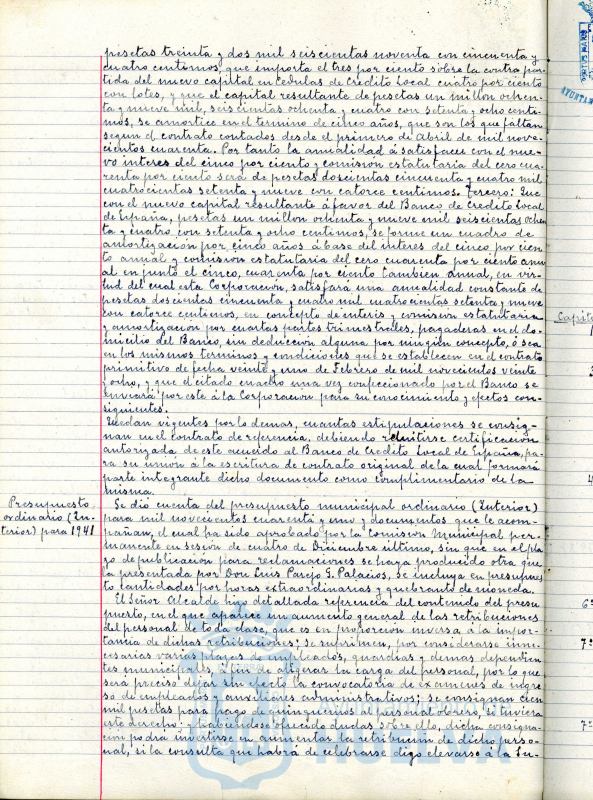 pesetas treinta y dos mil seiscientas noventa con cincuenta y
cuatro centimos, que importa el tres por ciento sobre la contra par-
tida del nuevo capital en cedulas de Credito Local cuatro por ciento
con lotes, y que el capital resultante de pesetas un millon ochen-
ta y nueve mil, seiscientas ochenta y cuatro con setenta y ocho centi-
mos, se amortice en el termino de cinco años, que son los que faltan
segun el contrato contados desde el primero de Abril de mil nove-
cientos cuarenta. Por tanto la anualidad á satisfacer con el nue-
vo interes del cinco por ciento y comisión estatutaria del cero cua-
renta por ciento será de pesetas doscientas cincuenta y cuatro mil
cuatrocientas setenta y nueve con catorce centimos. Tercero: Que
con el nuevo capital resultante á favor del Banco de Credito Local
de España, pesetas un millon ochenta y nueve mil seiscientas ochen-
ta y cuatro con setenta y ocho centimos, se forme un cuadro de
amortización por cinco años á base del interes del cinco por cien-
to anual y comision estatutaria del cero cuarenta por ciento anu-
al en junto el cinco, cuarenta por ciento tambien anual, en vir-
tud del cual esta Corporacion, satisfará una anualidad constante de
pesetas doscientas cincuenta y cuatro mil cuatrocientas setenta y nueve
con catorce centimos, en concepto de interés y comisión estatutaria
y amortización por cuartas partes trimestrales, pagaderas en el do-
micilio del Banco, sin deduccion alguna por ningún concepto, ó sea
en los mismos terminos y condiciones que se establecen en el contrato
primitivo de fecha veinte y uno de Febrero de mil novecientos veinte
y ocho, y que el citado cuadro una vez confeccionado por el Banco se
enviará por este á la Corporacion para su conocimiento y efectos con-
siguientes.
Quedan vigentes por lo demas, cuantas estipulaciones se consig-
nan en el contrato de referencia, debiendo remitirse certificación
autorizada de este acuerdo al Banco de Credito Local de España, pa-
ra su unión á la escritura de contrato original de la cual formará
parte integrante dicho documento como complimentario de la
misma.
Presupuesto
ordinario (In-
terior) para 1941
Se dió cuenta del presupuesto municipal ordinario (Interior)
para mil novecientos cuarenta y uno y documentos que le acom-
pañan, el cual ha sido aprobado por la Comisión Municipal per-
manente en sesión de cuatro de Diciembre último, sin que en el pla-
zo de publicación para reclamaciones se haya producido otra que
la presentada por Don Luis Parejo S. Palacios, se incluya en presupues-
to cantidades por horas extraordinarias y quebranto de moneda.
El Señor Alcalde hizo detallada referencia del contenido del presu-
puesto, en el que aparece un aumento general de las retribuciones
del personal de toda clase, que es en proporción inversa á la impor-
tancia de dichas retribuciones; se suprimen, por considerarse inne-
cesarias varias plazas de empleados, guardias y demas dependien-
tes municipales, á fin de aligerar la carga del personal, por lo que
será preciso dejar sin efecto la convocatoria de examenes de ingre-
so de empleados y auxiliares administrativos; se consignan cien
mil pesetas para pago de quinquenios al personal obrero, si tuviera
este derecho; habiendose ofrecido dudas sobre ello, dicha consigna-
ción podrá invertirse en aumentar la retribución de dicho perso-
nal, si la consulta que habrá de celebrarse digo elevarse á la Su-
Capit
6º
7º
7º